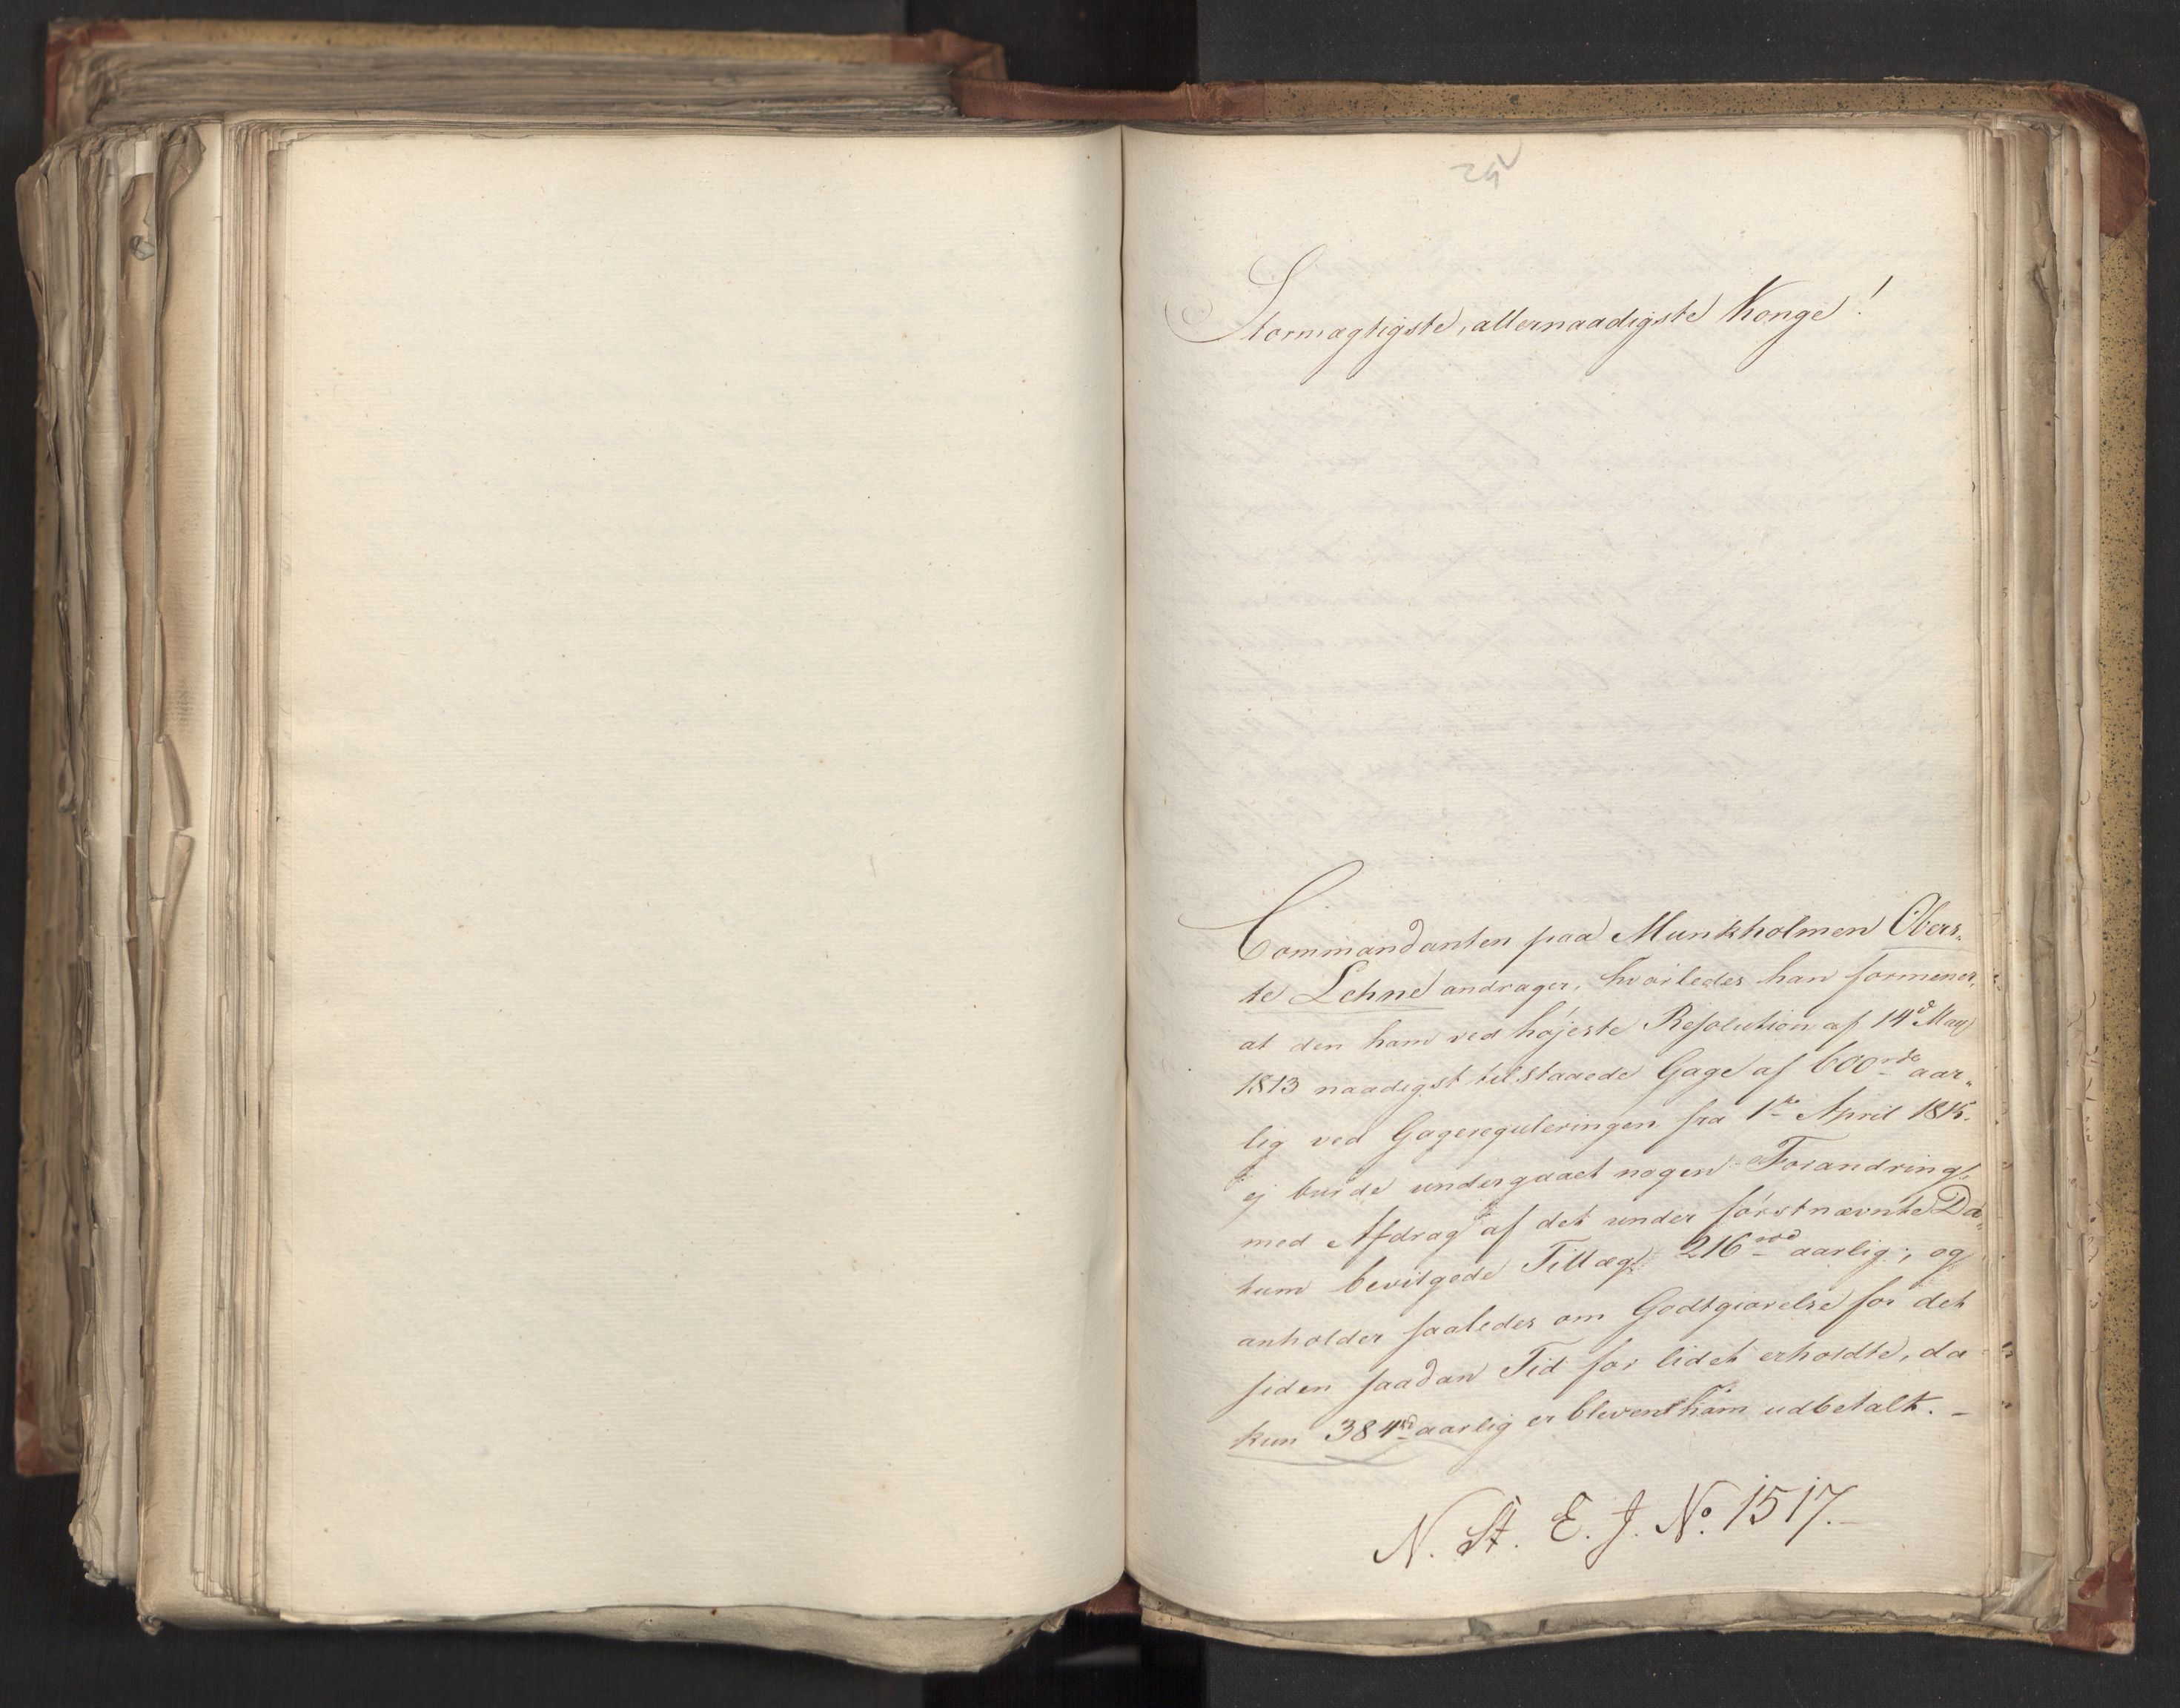 Stormægtigste, allernaadigste Konge!
Commandanten paa Munkholmen Obers„
te Lehne andrager, hvorledes han formener,
at den ham ved højeste Resolution af 14d May
1813 naadigst tilstaaede Gage af 600 rd aar„
lig ved Gagereguleringen fra 1ste April 1815.
ej burde undergaaet nogen Forandring,
med Afdrag af det under førstnævnte Da„
tum bevilgede Tillæg 216 rd aarlig; og
anholder saaledes om Godtgiørelse for det
siden saadan Tid for lidet erholdte, da
kun 384 rd aarlig er bleven ham udbetalt. –
N. St. E. J. No. 1517. –